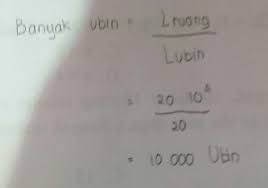 Banyak ubin = Lruang
Lubin
= 20 10⁴
20
= 10.000 Ubin